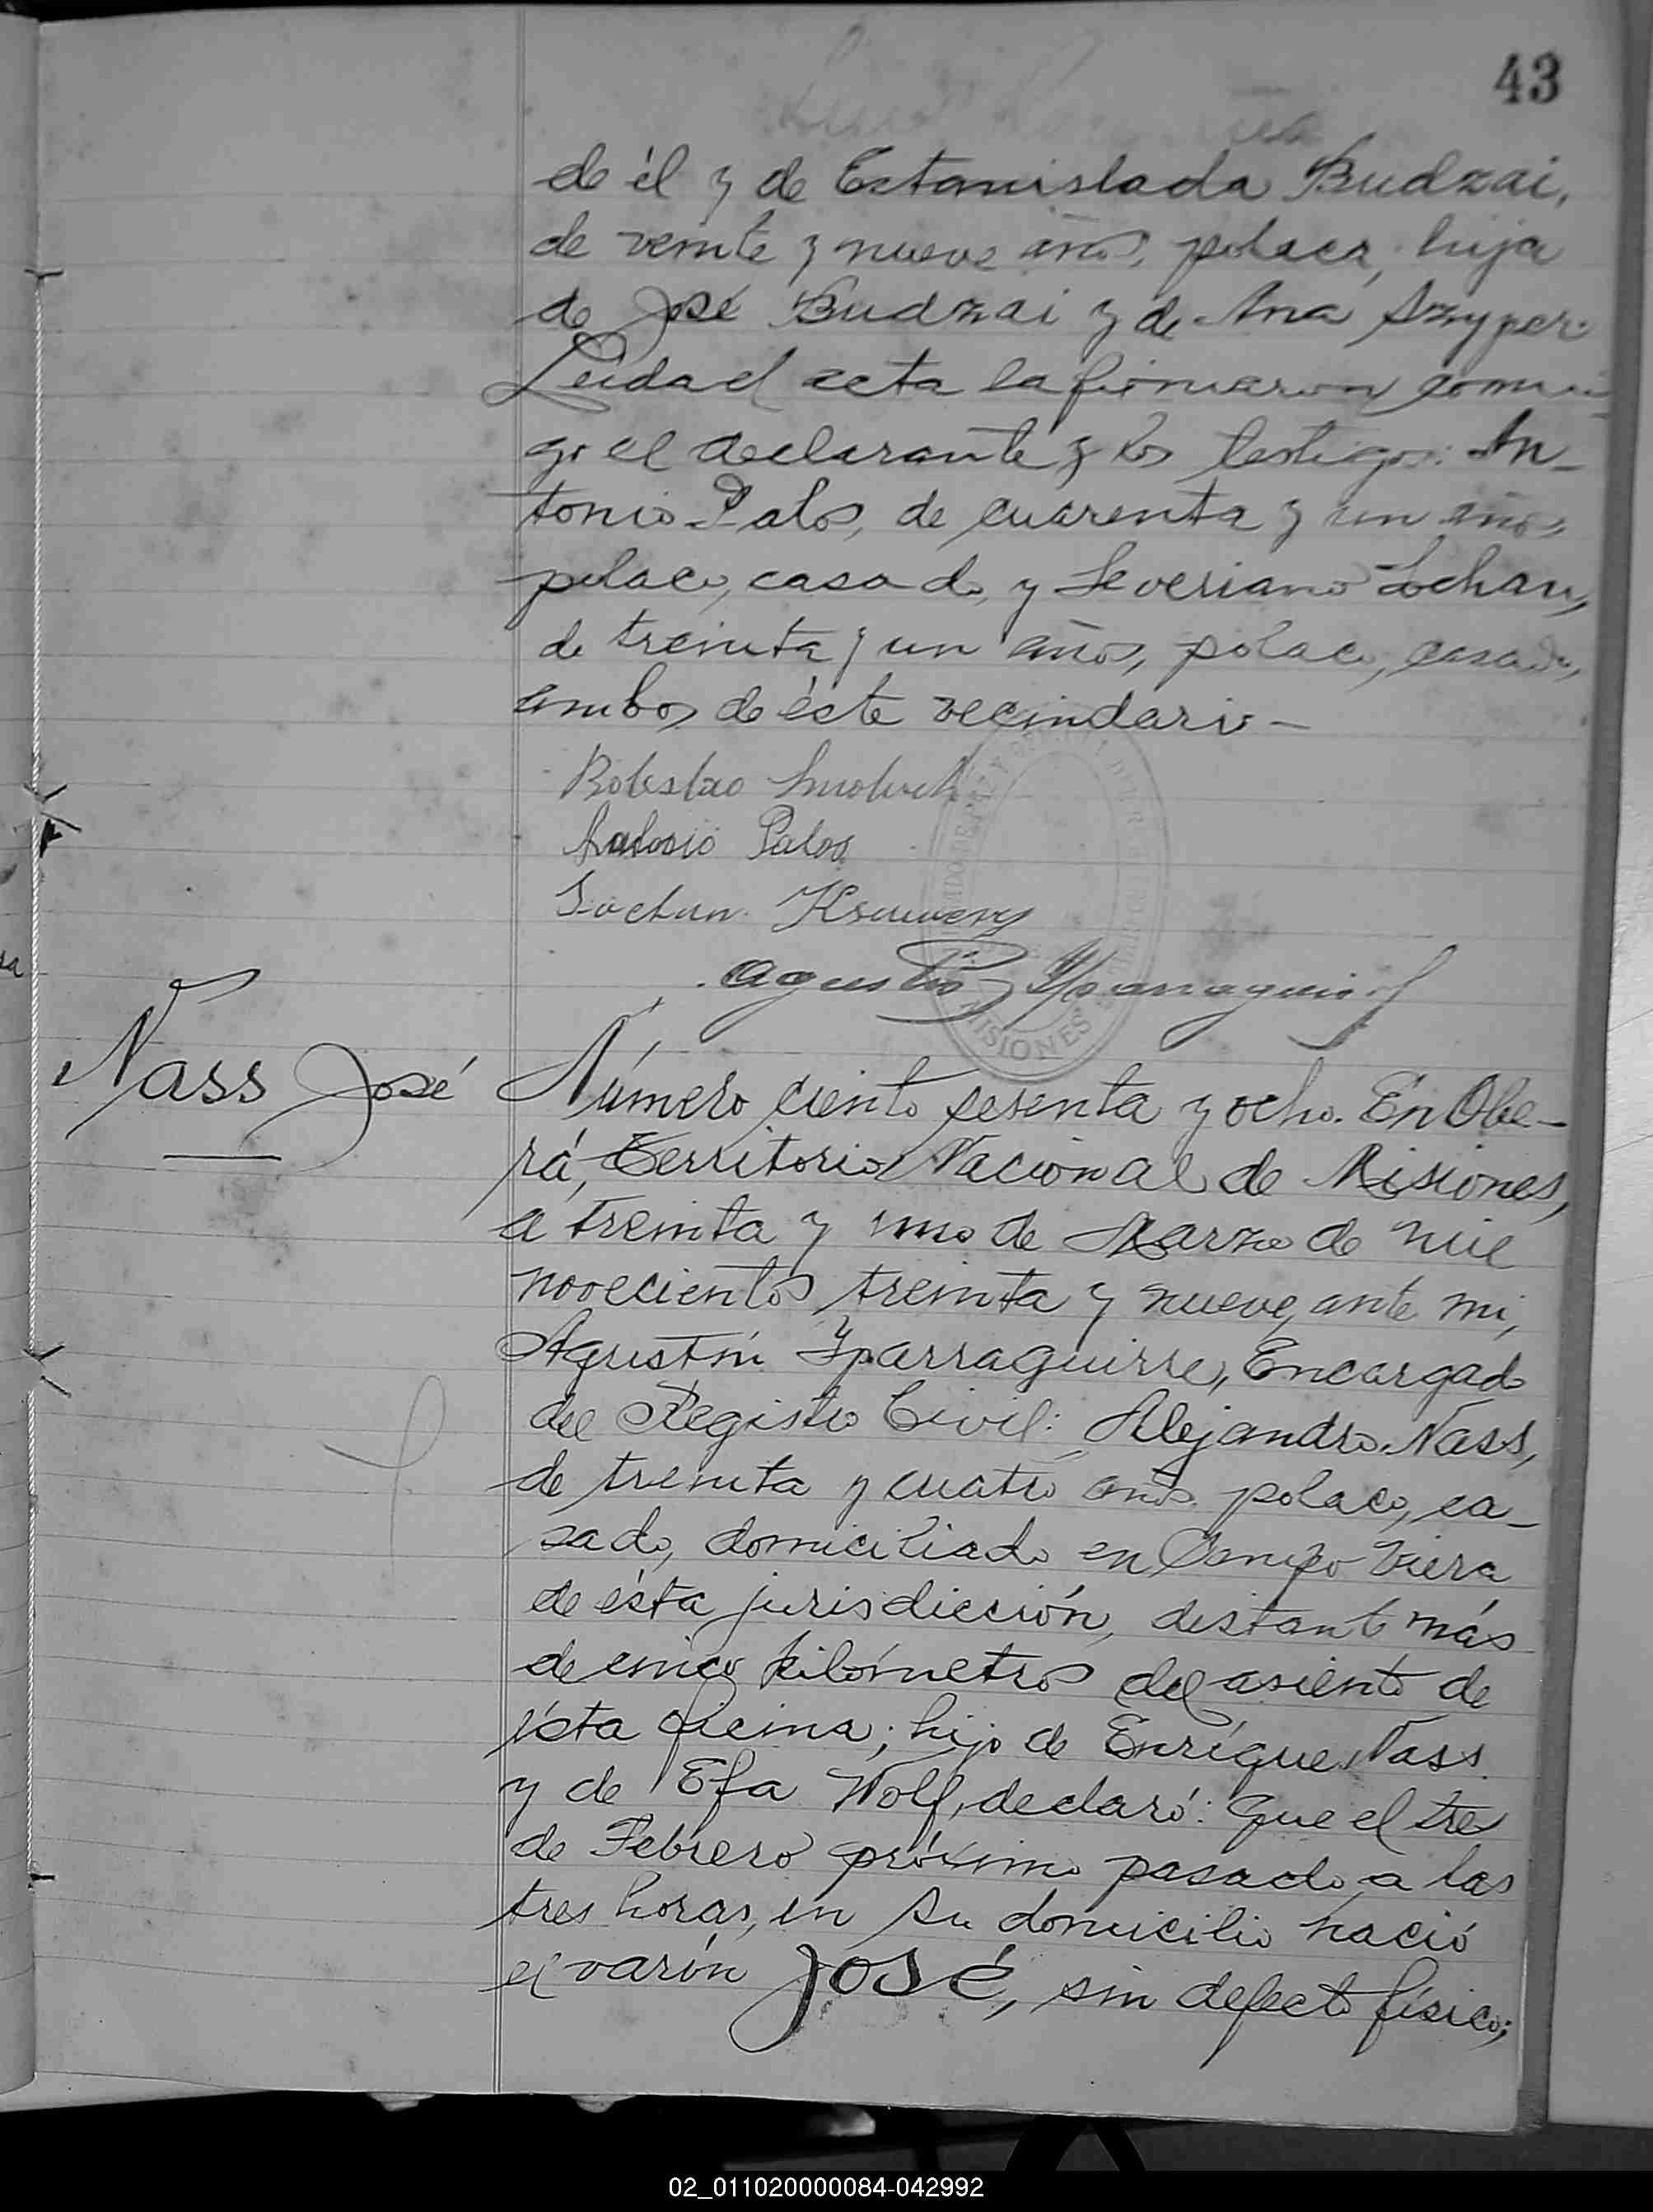 43
de él y de Estanislada Budzai,
de veinte y nueve años, polaca, hija
de José Budzai y de Ana Szyper.
Leida el acta la firmaron conmi
go el declarante y los testigos: An-
tonio Palos, de cuarenta y un años,
polaco, casado, y Severiano Lochan,
de treinta y un años, polaco, casado,
ambos de éste vecindario-
Boleslao
Antonio Palos
Lochan
Agustin Yparraguirre
MISIONES
Nass José
Número ciento sesenta y ocho. En Obe-
rá, Territorio Nacional de Misiones,
a treinta y uno de Marzo de mil
novecientos treinta y nueve, ante mi,
Agustín Yparraguirre, Encargado
del Registro Civil: Alejandro Nass,
de treinta y cuatro años, polaco, ca-
sado, domiciliado en Campo Viera
de ésta jurisdicción, distante más
de cinco kilómetros del asiento de
ésta oficina; hijo de Enrique Nass
y de Efa Wolf, declaró: Que el tres
de Febrero próximo pasado, a las
tres horas, en su domicilio nació
el varón José, sin defecto físico;
02_011020000084-042992